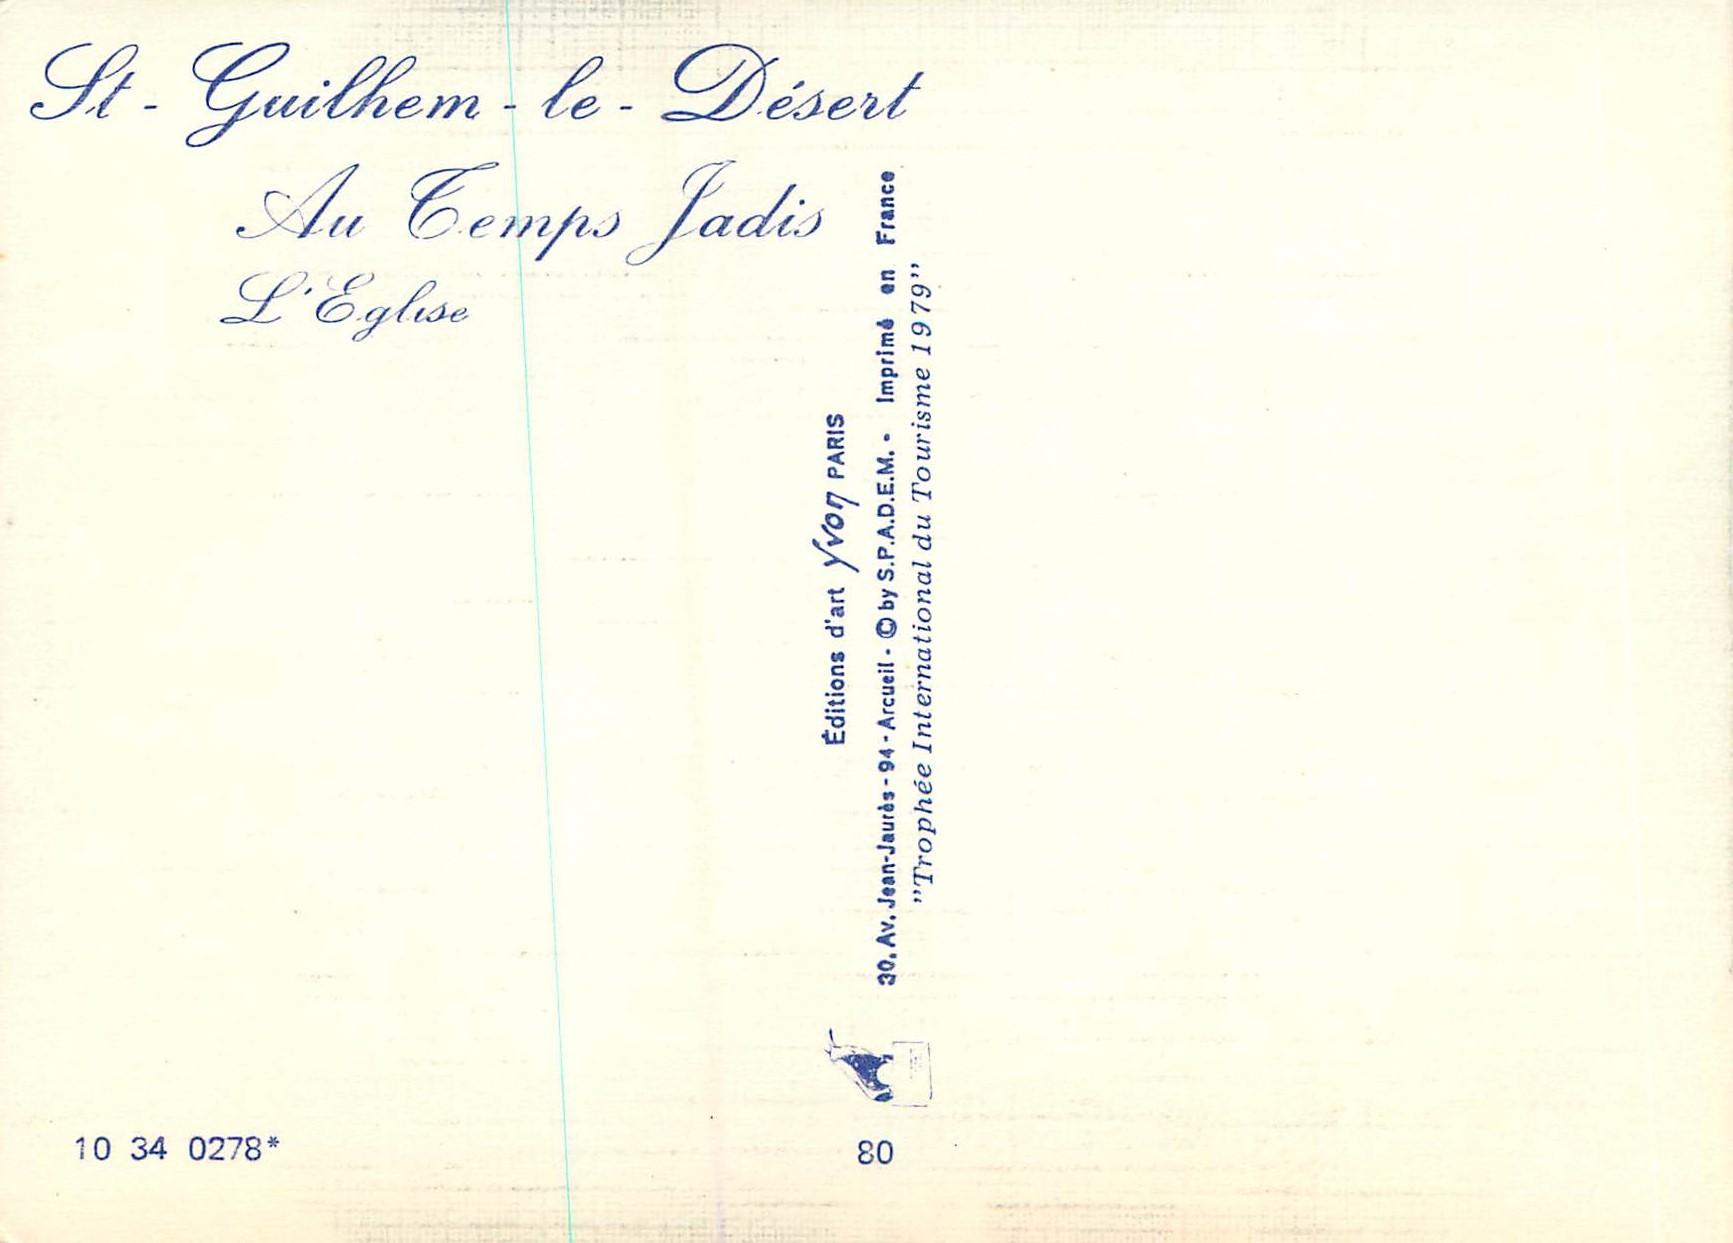 St - Guilhem - le - Désert
Au Temps Jadis
L'Eglise
Éditions d'art Yvon PARIS
30, Av. Jean-Jaurès - 94 - Arcueil - © by S.P.A.D.E.M. - Imprimé en France
"Trophée International du Tourisme 1979"
10 34 0278*
80